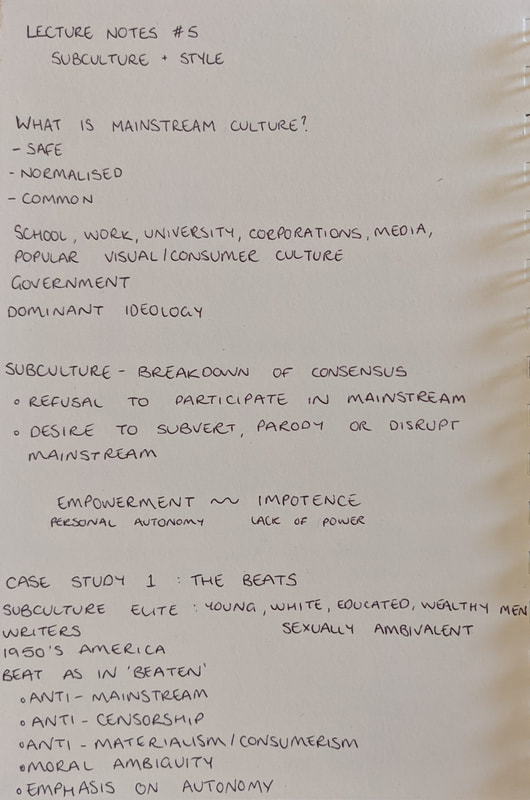 LECTURE NOTES #5
SUBCULTURE + STYLE
WHAT IS MAINSTREAM CULTURE?
- SAFE
- NORMALISED
- COMMON
SCHOOL, WORK, UNIVERSITY, CORPORATIONS, MEDIA,
POPULAR VISUAL/CONSUMER CULTURE
GOVERNMENT
DOMINANT IDEOLOGY
SUBCULTURE - BREAKDOWN OF CONSENSUS
• REFUSAL TO PARTICIPATE IN MAINSTREAM
• DESIRE TO SUBVERT, PARODY OR DISRUPT
MAINSTREAM
EMPOWERMENT ~ IMPOTENCE
PERSONAL AUTONOMY LACK OF POWER
CASE STUDY 1 : THE BEATS
SUBCULTURE ELITE : YOUNG, WHITE, EDUCATED, WEALTHY MEN
WRITERS SEXUALLY AMBIVALENT
1950'S AMERICA
BEAT AS IN 'BEATEN'
• ANTI - MAINSTREAM
• ANTI - CENSORSHIP
• ANTI - MATERIALISM/CONSUMERISM
• MORAL AMBIGUITY
• EMPHASIS ON AUTONOMY